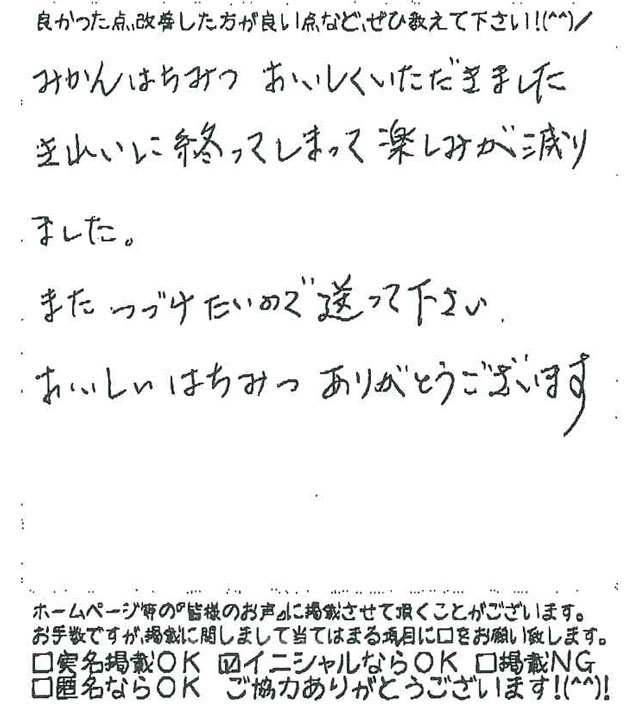 良かった点、改善した方が良い点など、ぜひ教えて下さい!(^^)/
みかんはちみつ おいしくいただきました
きれいに終ってしまって楽しみが減り
ました。
またつづけたいので送って下さい
おいしいはちみつ ありがとうございます
ホームページ等の『皆様のお声』に掲載させて頂くことがございます。
お手数ですが、掲載に関しまして当てはまる項目に□をお願い致します。
□実名掲載OK ☑イニシャルならOK □掲載NG
□匿名ならOK ご協力ありがとうございます!(^^)!